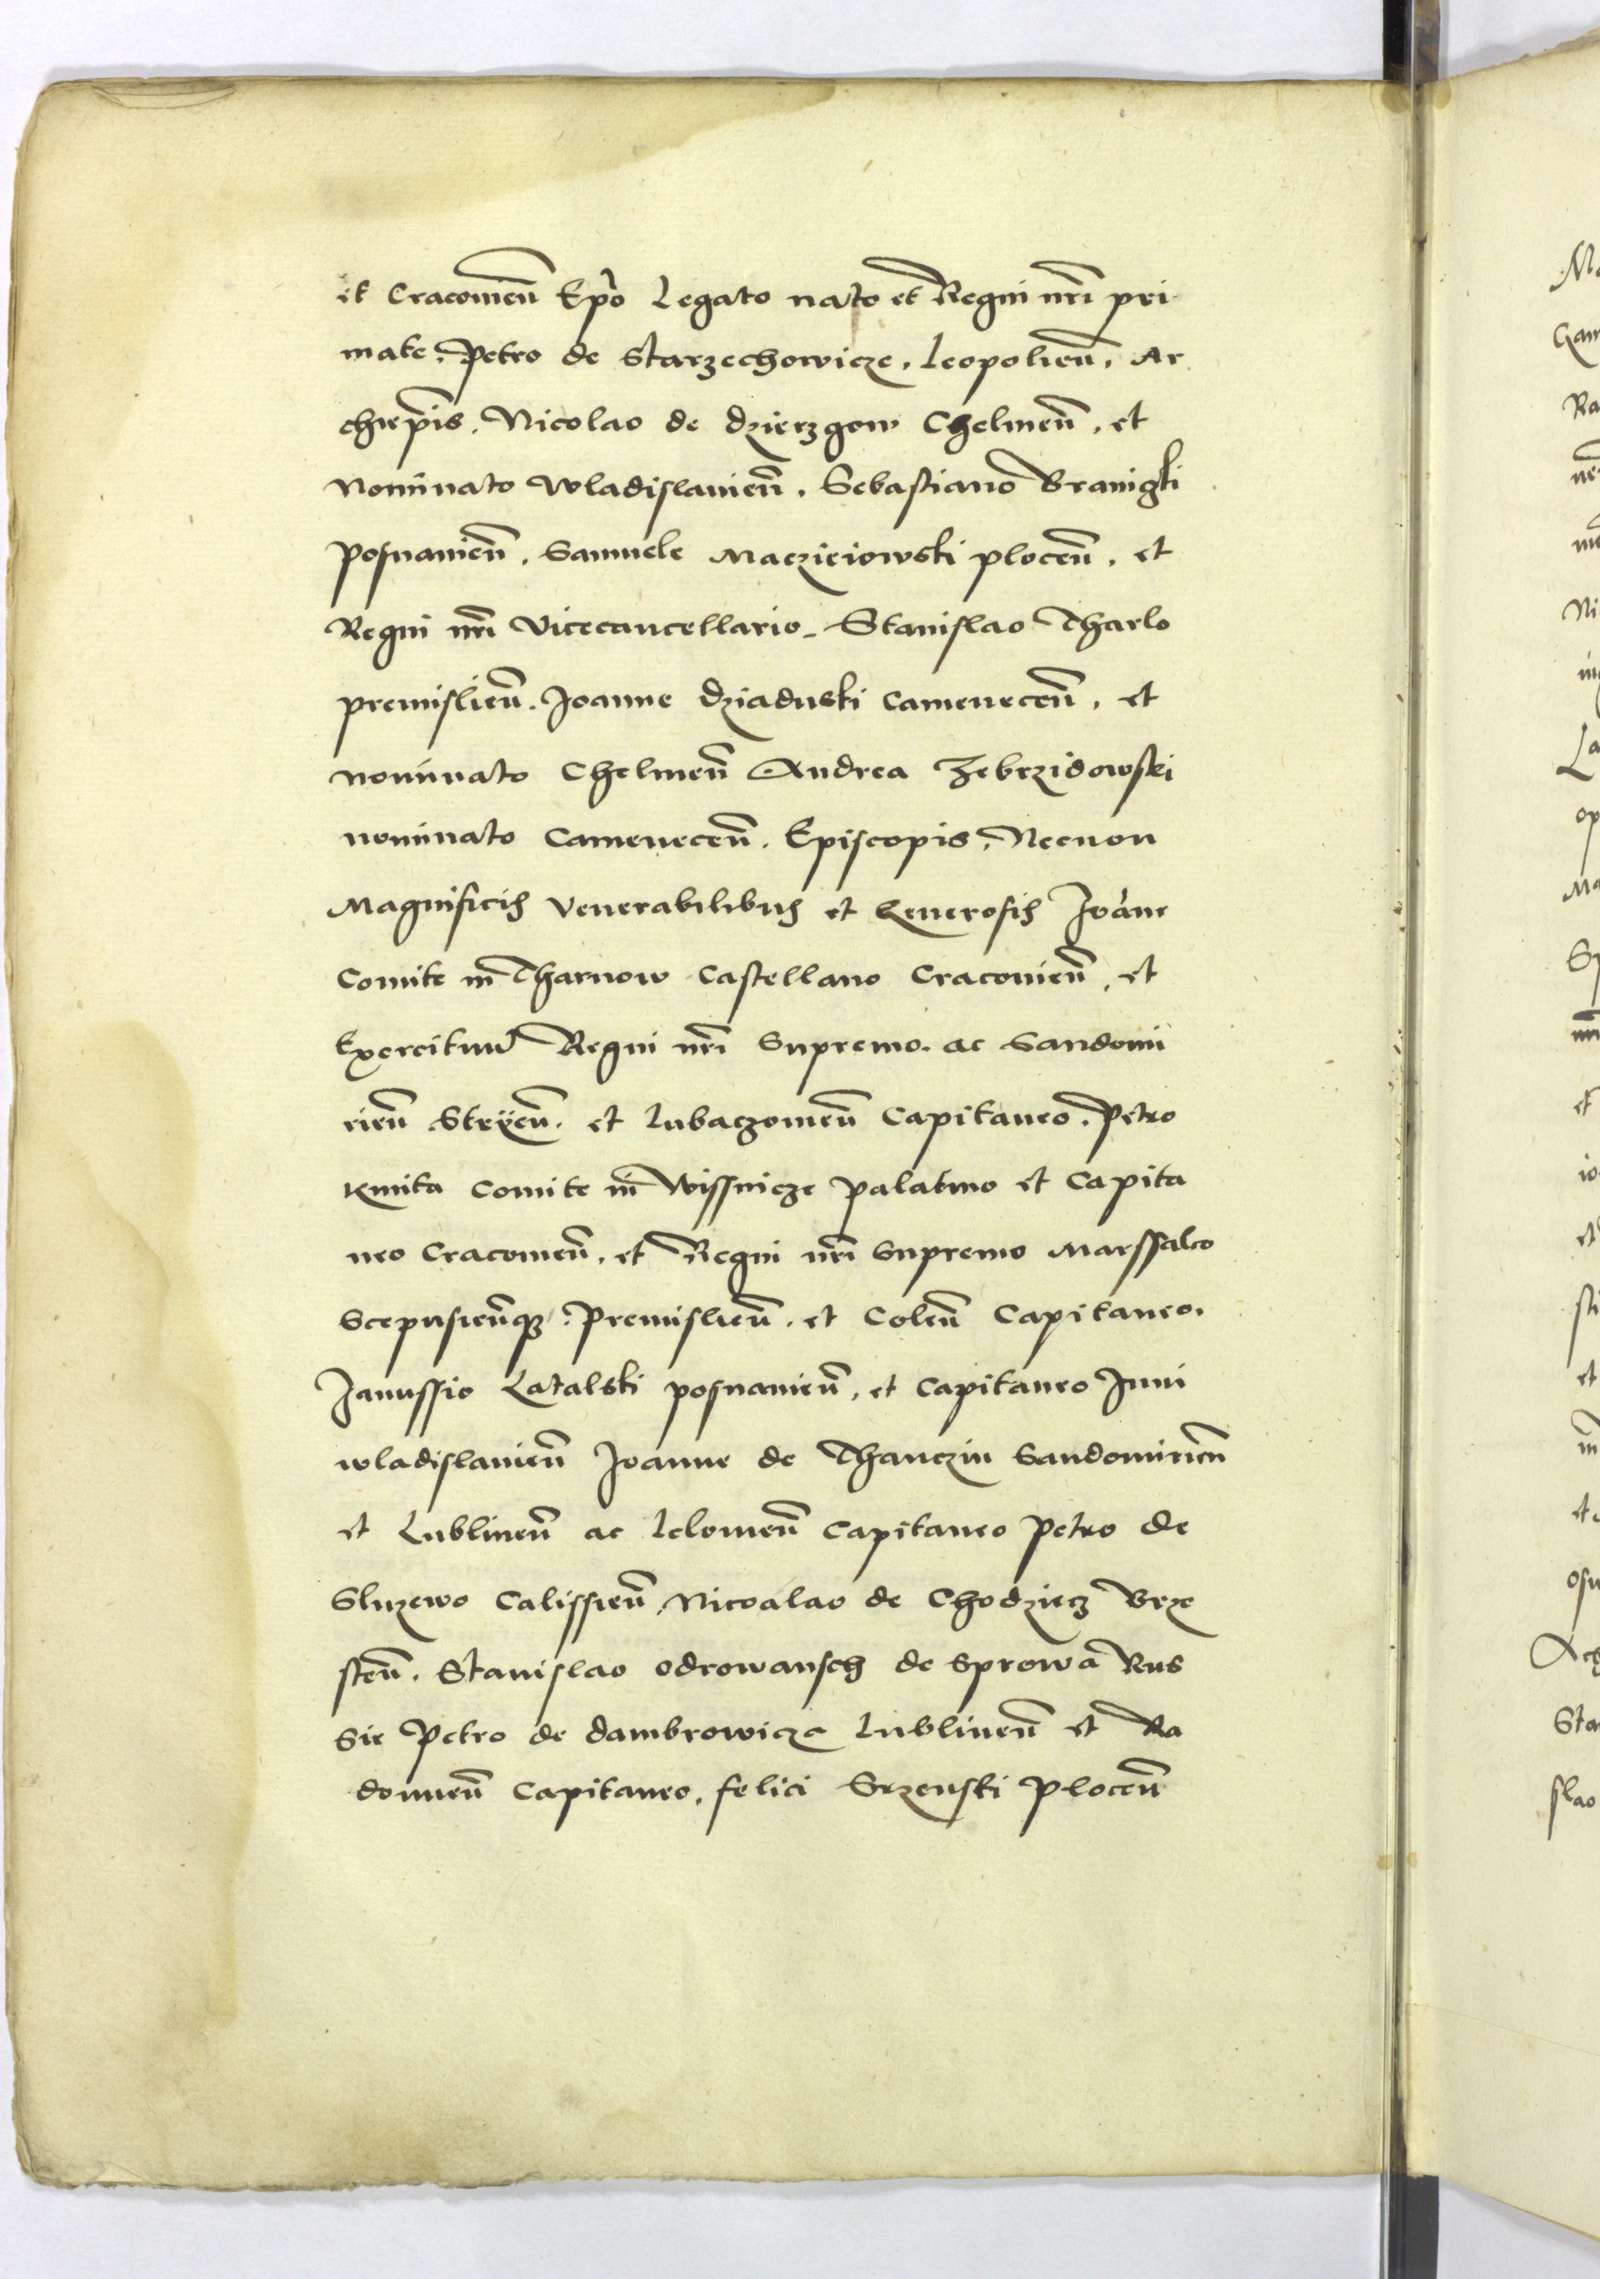 et Cracovien̄ Ep̄o Legato nato et Regni nr̄i pri
mate. Petro de Starzechowicze. Leopolien̄. Ar
chiep̄is. Nicolao de dzierzgow Chelmen̄. et
Nominato Wladislavien̄. Sebastiano Braniczki
posnanien̄. Samuele Maczieiowski plocen̄. et
Regni nr̄i Vicecancellario. Stanislao Tharlo
premislien̄. Joanne dziaduski Camenecen̄. et
nominato Chelmen̄ Andrea Zebrzidowski
nominato Camenecen̄. Episcopis. Necnon
Magnificis Venerabilibus et Generosis Joāne
Comite in Tharnow Castellano Cracovien̄. et
Exercituum Regni nr̄i Supremo. ac Sandomi
rien̄ Stryien̄. et Lubaczovien̄ Capitaneo. Petro
Kmita Comite in Wissnicze palatino et Capita
neo Cracovien̄. et Regni nr̄i Supremo Marssalco
Scepusien̄q₃. Premislien̄. et Colen̄ Capitaneo.
Janussio Latalski posnanien̄. et Capitaneo Juni
wladislavien̄ Joanne de Thanczin Sandomirien̄
et Lublinen̄ ac lelovien̄ Capitaneo Petro de
Sluzewo Calissien̄. Nicoalao de Chodziecz Brze
sten̄. Stanislao odrowansch de Sprowa Rus
sie Petro de dambrowicza lublinen̄ et Ra
domien̄ Capitaneo. felici Srzenski plocen̄